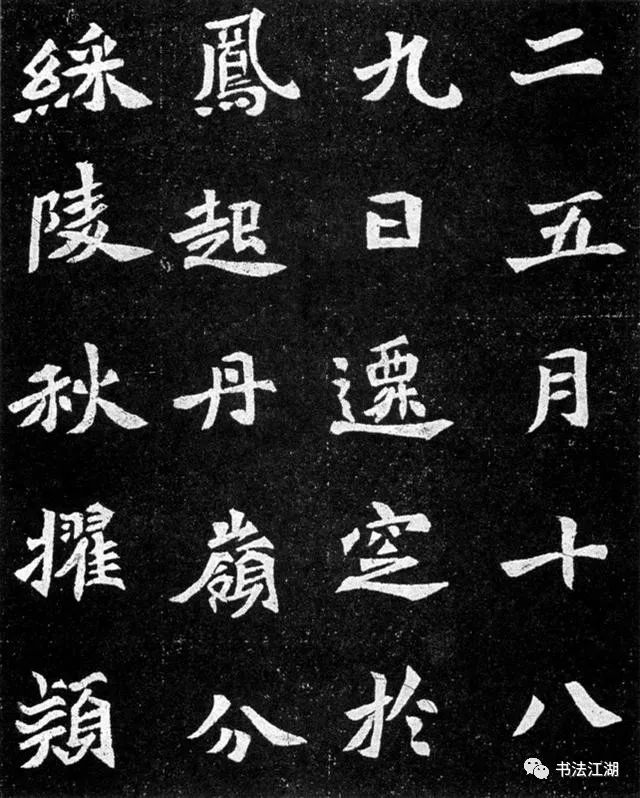 二五月十八
九日遷窆於
鳳起丹嶺分
綵陵秋擢穎
书法江湖